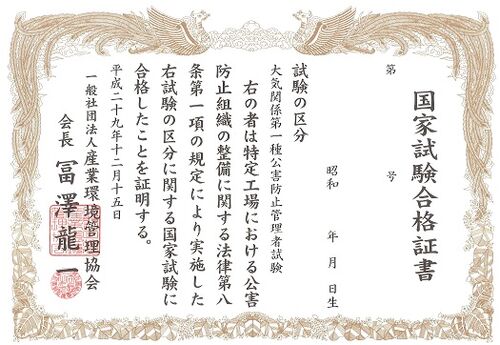 国家試験合格証書
第 号
昭和 年 月 日生
試験の区分
大気関係第一種公害防止管理者試験
右の者は特定工場における公害
防止組織の整備に関する法律第八
条第一項の規定により実施した
右試験の区分に関する国家試験に
合格したことを証明する。
平成二十九年十二月十五日
一般社団法人産業環境管理協会
会長 冨澤龍一